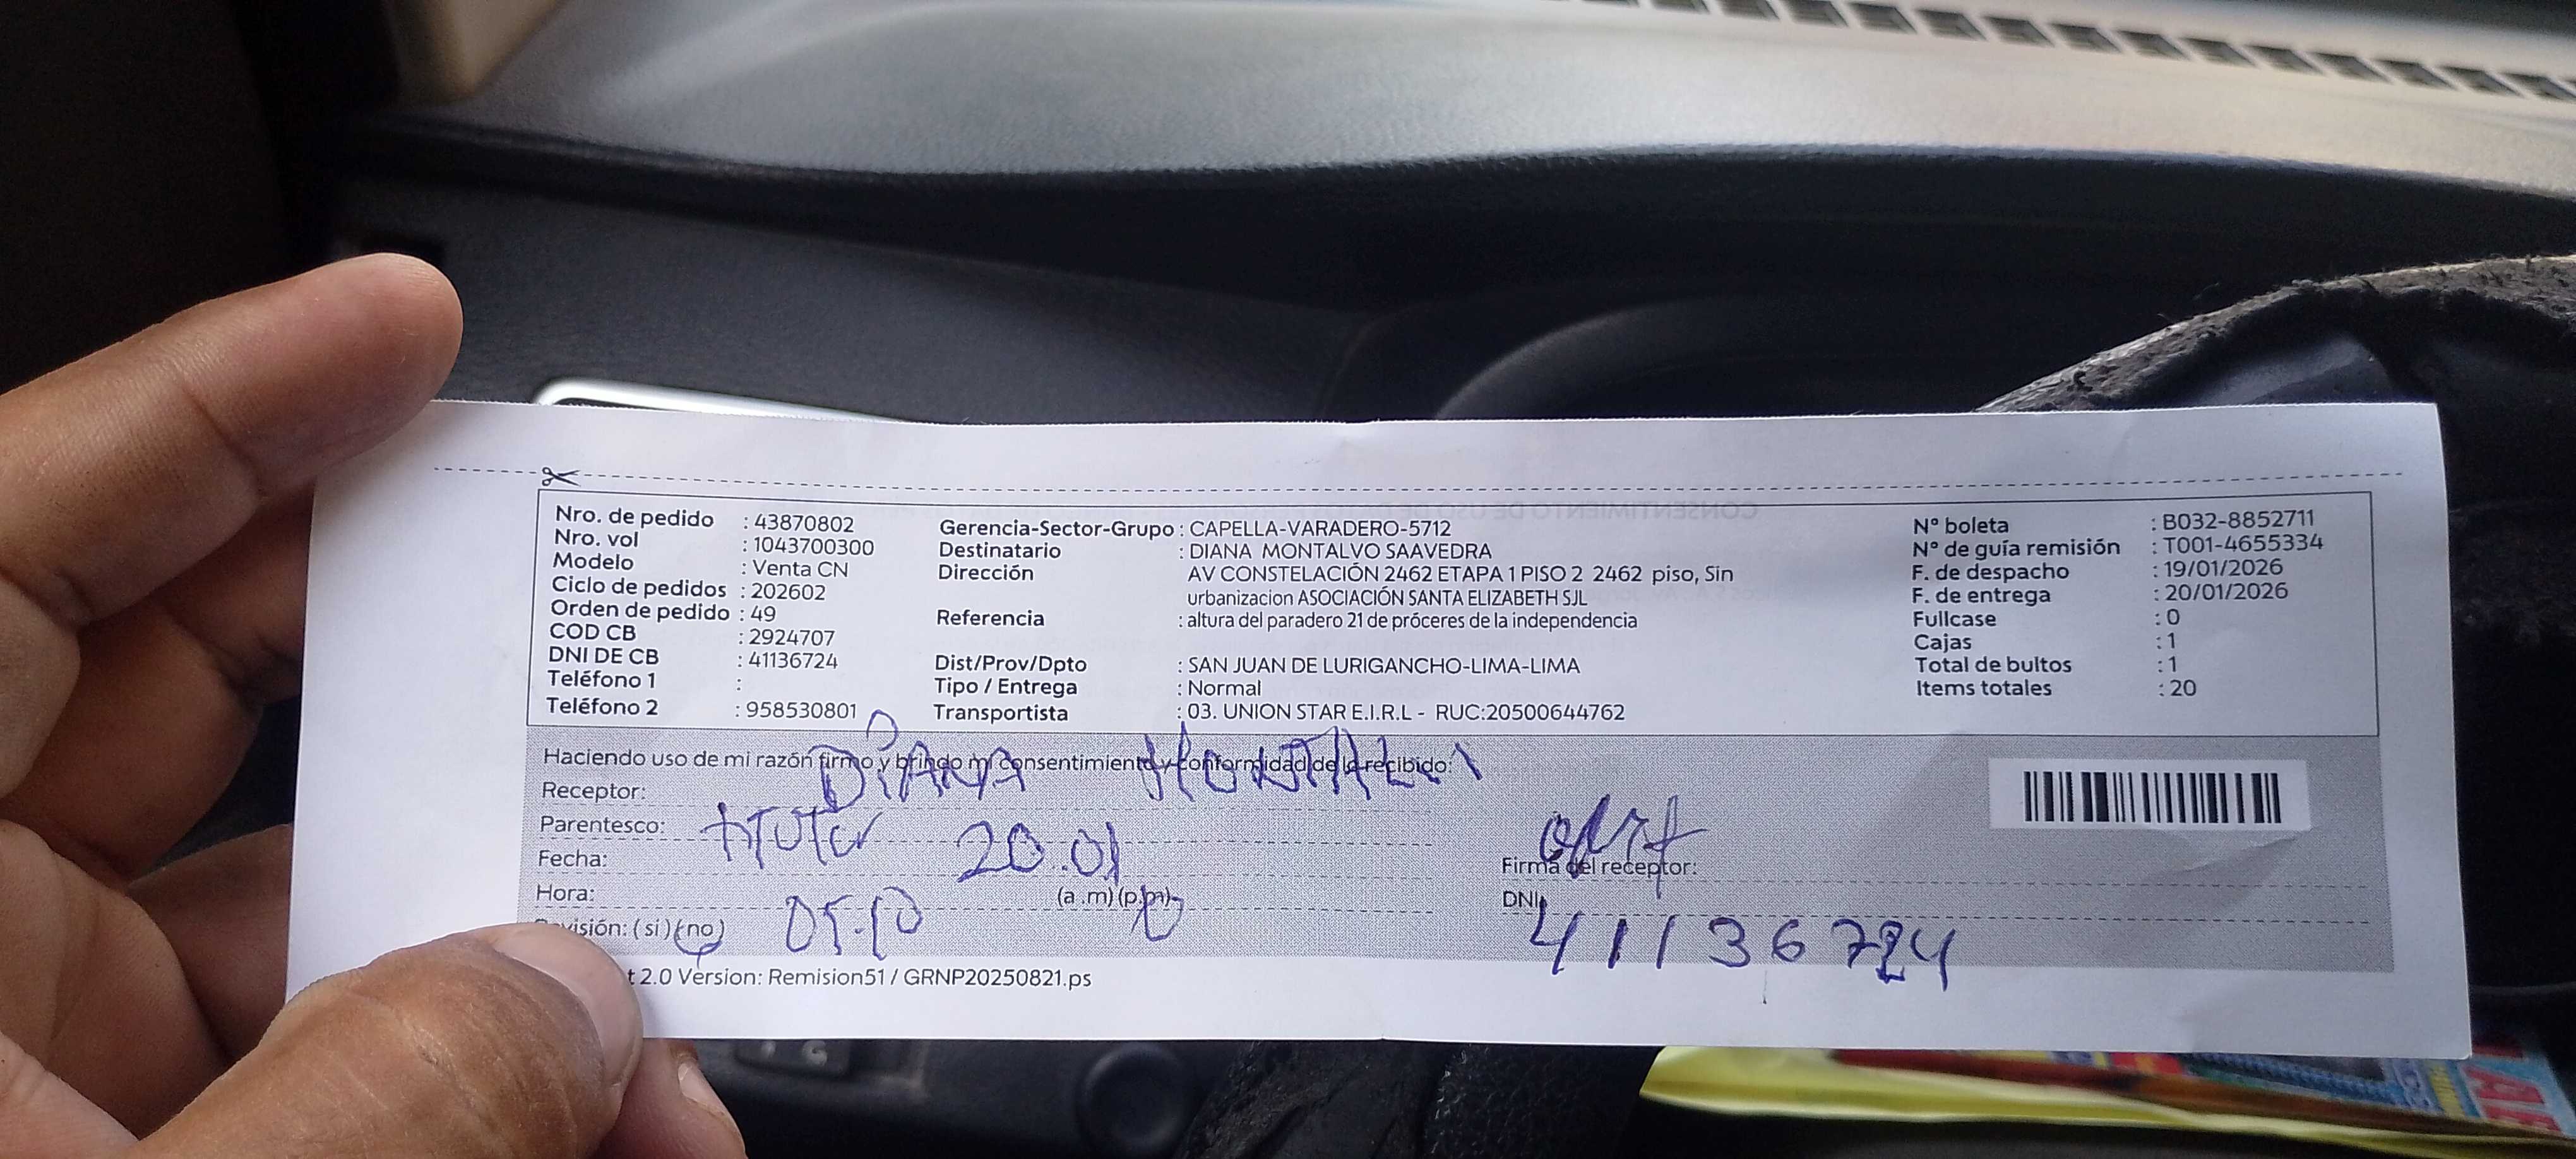 Nro. de pedido : 43870802
Nro. vol : 1043700300
Modelo : Venta CN
Ciclo de pedidos : 202602
Orden de pedido : 49
COD CB : 2924707
DNI DE CB : 41136724
Teléfono 1 :
Teléfono 2 : 958530801
Gerencia-Sector-Grupo : CAPELLA-VARADERO-5712
Destinatario : DIANA MONTALVO SAAVEDRA
Dirección AV CONSTELACIÓN 2462 ETAPA 1 PISO 2 2462 piso, Sin
urbanizacion ASOCIACIÓN SANTA ELIZABETH SJL
Referencia : altura del paradero 21 de próceres de la independencia
Dist/Prov/Dpto : SAN JUAN DE LURIGANCHO-LIMA-LIMA
Tipo / Entrega : Normal
Transportista : 03. UNION STAR E.I.R.L - RUC:20500644762
N° boleta : B032-8852711
N° de guía remisión : T001-4655334
F. de despacho : 19/01/2026
F. de entrega : 20/01/2026
Fullcase : 0
Cajas : 1
Total de bultos : 1
Items totales : 20
Haciendo uso de mi razón firmo y brindo mi consentimiento y conformidad de lo recibido:
Receptor: DIANA
Parentesco:
Fecha: 20.01
Hora: 05.10 (a.m) (p.m)
(si) (no)
Firma del receptor:
DNI: 41136724
2.0 Version: Remision51 / GRNP20250821.ps